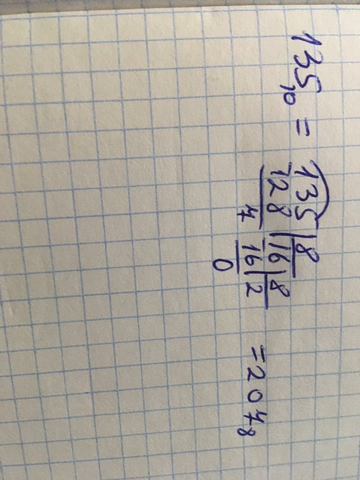 135₁₀ = 135 | 8
128 | 16 | 8
7 16 | 2 = 207₈
0